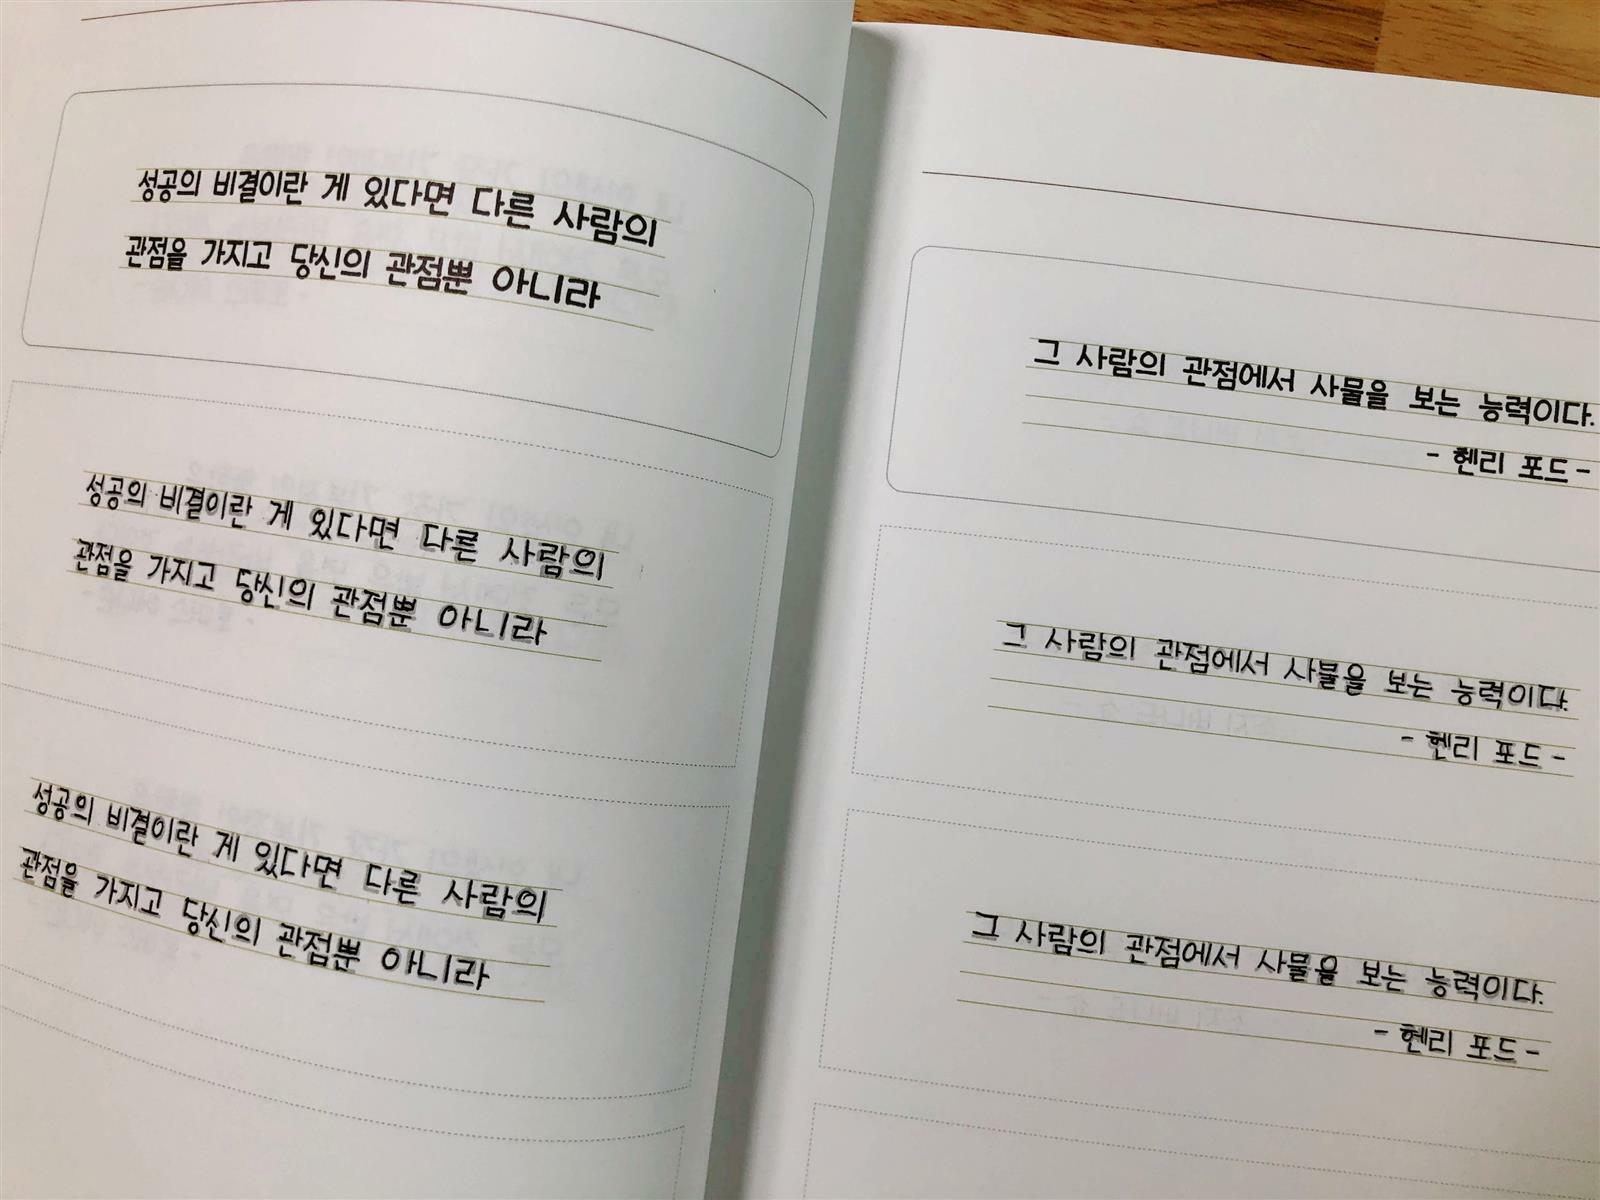 성공의 비결이란 게 있다면 다른 사람의
관점을 가지고 당신의 관점뿐 아니라
성공의 비결이란 게 있다면 다른 사람의
관점을 가지고 당신의 관점뿐 아니라
성공의 비결이란 게 있다면 다른 사람의
관점을 가지고 당신의 관점뿐 아니라
그 사람의 관점에서 사물을 보는 능력이다.
- 헨리 포드 -
그 사람의 관점에서 사물을 보는 능력이다.
- 헨리 포드 -
그 사람의 관점에서 사물을 보는 능력이다.
- 헨리 포드 -